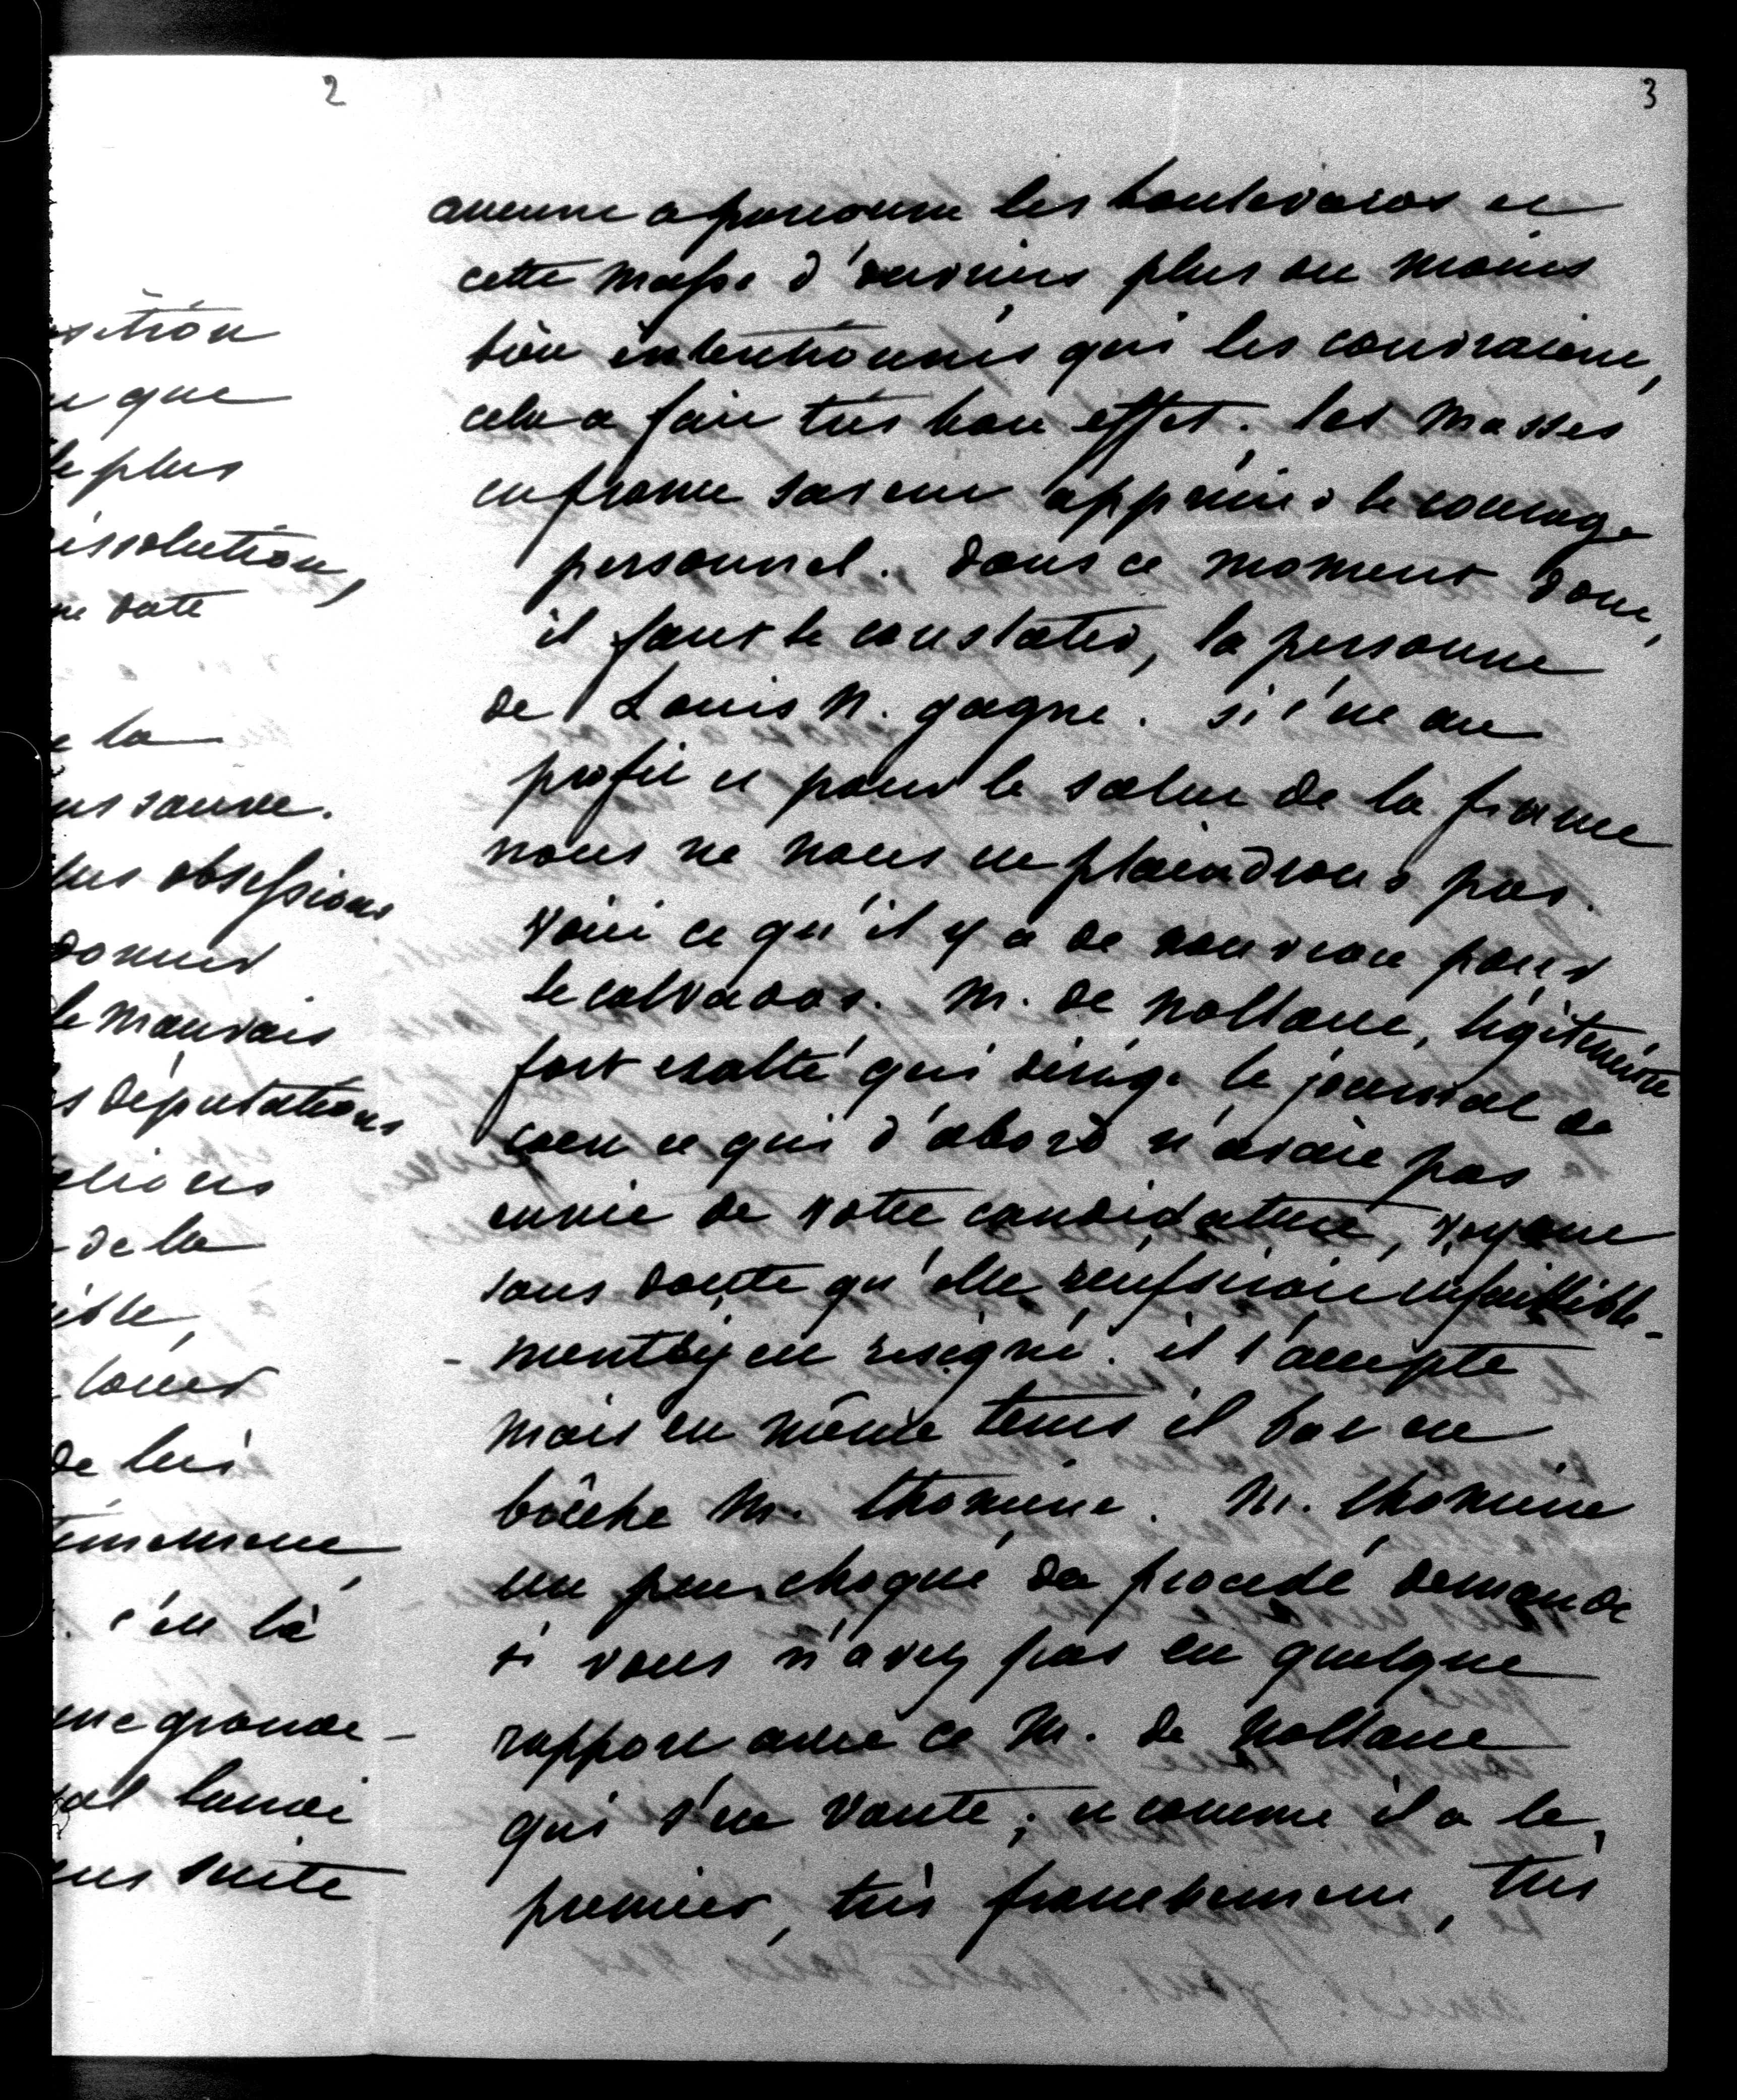 2
sition
que
le plus
issolution,
ne date
e la
us sauve.
lus obsessions
donner
le mauvais
s députations
elions
de la
ible,
louer
de lui
timement,
. c'en là
une grande
lundi
ens suite
3
aucune a parcouru les boulevards et
cette masse d'ouvriers plus ou moins
bien intentionnés qui les couvraient,
cela a fait très bon effet. les masses
en france savent apprécier le courage
personnel. dans ce moment donc,
il faut le constater, la personne
de Louis N. gagne. si c'est au
profit et pour le salut de la france
nous ne nous en plaindrons pas.
voici ce qu'il y a de nouveau pour
le calvados. M. de Nollant, légitimiste
fort exalté qui dirige le journal de
caen et qui d'abord n'avait pas
envie de votre candidature, voyant
sans doute qu'elle reussirait infaillible-
- ment s'y est resigné. il l'accepte
mais en même tems il bat en
brêche M. thomine. M. thomine
un peu choqué du procédé demande
si vous n'avez pas eu quelque
rapport avec ce M. de Nollant
qui s'en vante ; et comme il a le,
premier, très franchement, très